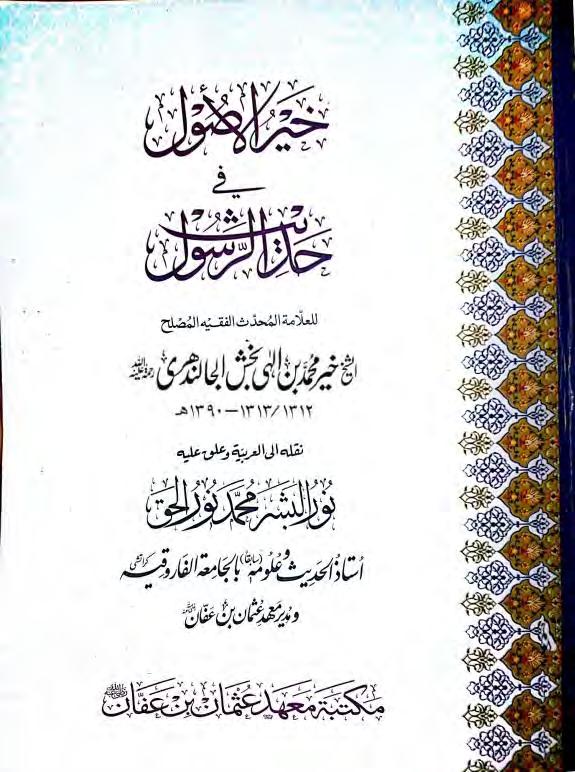 خَيْرُ الأُصُولِ
في
حَدِيثِ الرَّسُولِ
للعلّامة المُحدّث الفقيه المُصْلح
الشيخ خير محمد بن الٰهی بخش الجالندھری رحمة الله عليه
١٣١٢/١٣١٣ – ١٣٩٠ھ
نقله الى العربية وعلق عليه
نُورُ البَشَر مُحَمَّد نُورُ الحَق
أستاذُ الحَدِيث وعُلُومه (سابقاً) بالجامعة الفاروقيه كراتشي
ومدير معهد عُثمان بن عفّان رضي الله عنه
مكتبة معهد عُثمان بن عَفّان رضي الله عنه